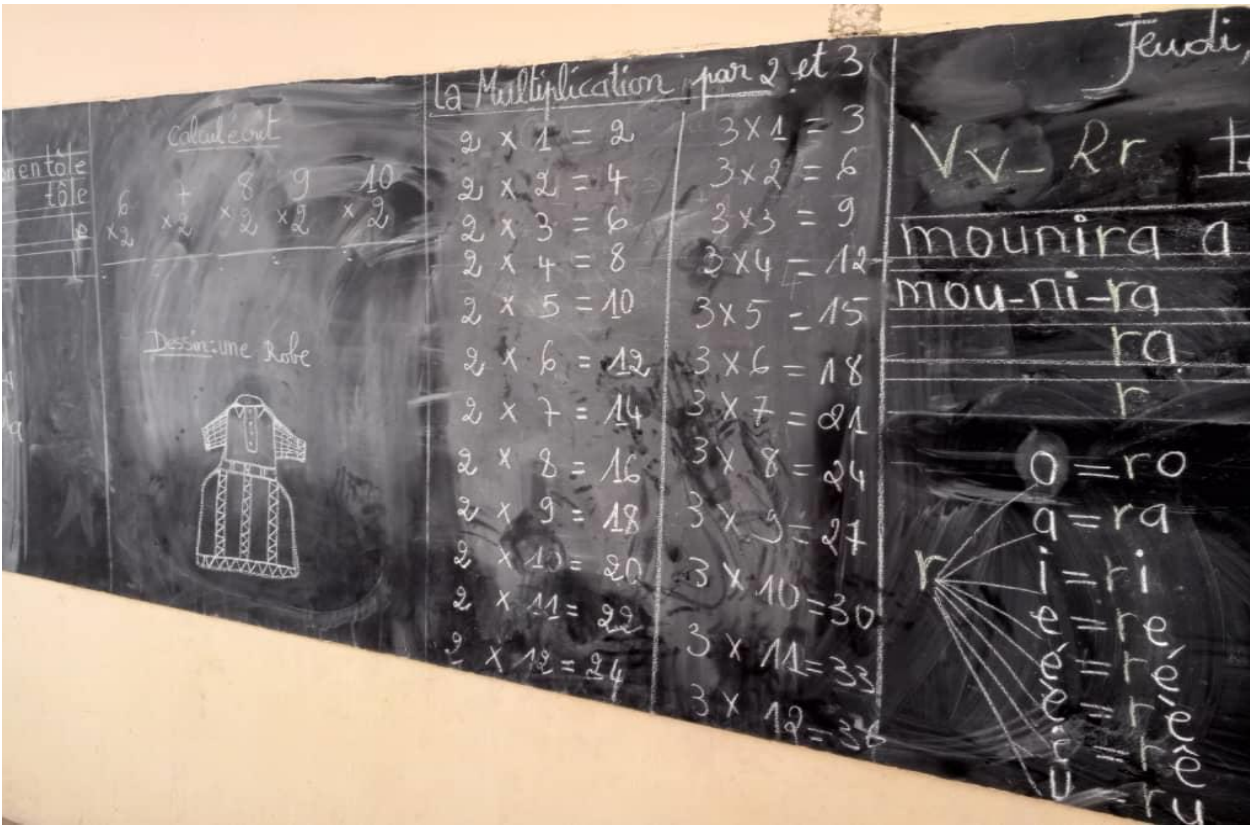 tôle
tôle
Calcul écrit
6 7 8 9 10
×2 ×2 ×2 ×2 ×2
Dessin: une Robe
La Multiplication par 2 et 3
2 × 1 = 2
2 × 2 = 4
2 × 3 = 6
2 × 4 = 8
2 × 5 = 10
2 × 6 = 12
2 × 7 = 14
2 × 8 = 16
2 × 9 = 18
2 × 10 = 20
2 × 11 = 22
2 × 12 = 24
3 × 1 = 3
3 × 2 = 6
3 × 3 = 9
3 × 4 = 12
3 × 5 = 15
3 × 6 = 18
3 × 7 = 21
3 × 8 = 24
3 × 9 = 27
3 × 10 = 30
3 × 11 = 33
3 × 12 = 36
Jeudi,
Vv - Rr
mounira a
mou-ni-ra
ra
r
r
o = ro
a = ra
i = ri
e = re
é = ré
è = rè
ê = rê
u = ru